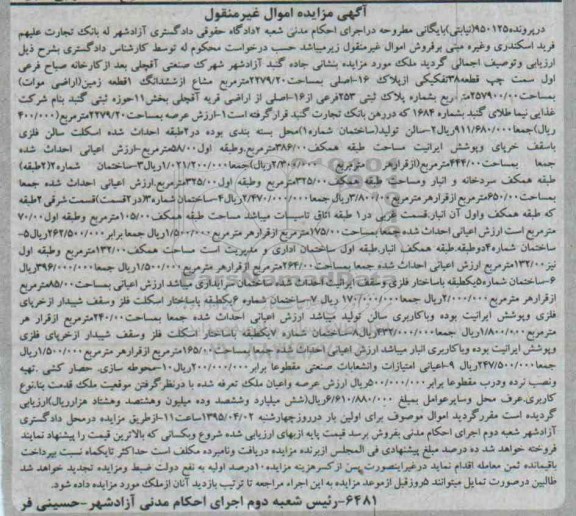 آگهی مزایده اموال غیرمنقول
درپرونده۹۵۰۱۲۵(نیابتی)بایگانی مطروحه دراجرای احکام مدنی شعبه ۲دادگاه حقوقی دادگستری آزادشهر له بانک تجارت علیهم
فرید اسکندری وغیره مبنی برفروش اموال غیرمنقول زیرمیباشد حسب درخواست محکوم له توسط کارشناس دادگستری بشرح ذیل
ارزیابی وتوصیف اجمالی گردید ملک مورد مزایده بنشانی جاده گنبد آزادشهر شهرک صنعتی آقچلی بعد ازکارخانه صباح فرعی
اول سمت چپ قطعه۳۸تفکیکی ازپلاک ۱۶-اصلی بمساحت۲۲۷۹/۲۰مترمربع مشاع ازششدانگ ۱قطعه زمین(اراضی موات)
بمساحت۲۵۷۹۰۰/۰۰متر مربع بشماره پلاک ثبتی ۲۵۳فرعی از۱۶-اصلی از اراضی قریه آقچلی بخش۱۱حوزه ثبتی گنبد بنام شرکت
غذایی نیما طلای گنبد بشماره ۱۶۸۴ که دررهن بانک تجارت گنبد قرارگرفته است۱-ارزش عرصه بمساحت۲۲۷۹/۲۰مترمربع(۴۰۰/۰۰۰
ریال)جمعا۹۱۱/۶۸۰/۰۰۰ریال۲-سالن تولید(ساختمان شماره۱)محل بسته بندی بوده در۲طبقه احداث شده اسکلت سالن فلزی
باسقف خرپای وپوشش ایرانیت مساحت طبقه همکف۳۸۶/۰۰مترمربع.وطبقه اول۵۸/۰۰مترمربع-ارزش اعیانی احداث شده
جمعا بمساحت۴۴۴/۰۰مترمربع(ازقرارهر مترمربع ۲/۳۰۰/۰۰۰ریال)جمعا۱/۰۲۱/۲۰۰/۰۰۰ریال۳-ساختمان شماره۲(۲طبقه)
طبقه همکف سردخانه و انبار ومساحت طبقه همکف۳۲۵/۰۰مترمربع وطبقه اول۳۲۵/۰۰مترمربع.ارزش اعیانی احداث شده جمعا
بمساحت۶۵۰/۰۰مترمربع ازقرارهر مترمربع۳/۸۰۰/۰۰۰ریال جمعا۲/۴۷۰/۰۰۰/۰۰۰ریال۴-ساختمان شماره۳(در۲قسمت)قسمت شرقی ۲طبقه
که طبقه همکف واول آن انبار.قسمت غربی در۱ طبقه اتاق تاسیسات میباشد مساحت طبقه همکف۱۰۵/۰۰مترمربع وطبقه اول۷۰/۰۰
مترمربع است ارزش اعیانی احداث شده جمعا بمساحت۱۷۵/۰۰مترمربع ازقرارهر مترمربع۱/۵۰۰/۰۰۰ریال جمعا برابر۲۶۲/۵۰۰/۰۰۰ریال۵-
ساختمان شماره۴دوطبقه.طبقه همکف انبار.طبقه اول ساختمان اداری و مدیریت است مساحت همکف۱۳۲/۰۰مترمربع وطبقه اول
نیز۱۳۲/۰۰مترمربع ارزش اعیانی احداث شده جمعا بمساحت۲۶۴/۰۰مترمربع ازقرارهر مترمربع۱/۵۰۰/۰۰۰ریال جمعا۳۹۶/۰۰۰/۰۰۰ریال
۶-ساختمان شماره۵یکطبقه باساختار فلزی وسقف ایرانیت احداث شده.ساختمان سرایداری میباشد ارزش اعیانی بمساحت۸۵/۰۰مترمربع
ازقرارهر مترمربع۲/۰۰۰/۰۰۰ریال جمعا ۱۷۰/۰۰۰/۰۰۰ ریال ۷-ساختمان شماره ۶یکطبقه باساختار اسکلت فلز وسقف شیبدار ازخرپای
فلزی وپوشش ایرانیت بوده وباکاربری سالن تولید میباشد ارزش اعیانی احداث شده جمعا بمساحت۲۴۰/۰۰مترمربع ازقرار هر
مترمربع۱/۸۰۰/۰۰۰ریال جمعا۴۳۲/۰۰۰/۰۰۰ریال۸-ساختمان شماره ۷یکطبقه باساختار اسکلت فلز وسقف شیبدار ازخرپای فلزی
وپوشش ایرانیت بوده وباکاربری انبار میباشد ارزش اعیانی احداث شده جمعا بمساحت۱۶۵/۰۰مترمربع ازقرارهر مترمربع۱/۵۰۰/۰۰۰ریال
جمعا۲۴۷/۵۰۰/۰۰۰ریال ۹-اعیانی امتیازات وانشعابات صنعتی مقطوعا برابر۲۰۰/۰۰۰/۰۰۰ریال۱۰-محوطه سازی. حصار کشی .تهیه
ونصب نرده ودرب مقطوعا برابر۵۰۰/۰۰۰/۰۰۰ریال ارزش عرصه واعیان ملک تعرفه شده با درنظرگرفتن موقعیت ملک قدمت بنانوع
کاربری.عرف محل وسایرعوامل بمبلغ ۶/۶۱۰/۸۸۰/۰۰۰ریال(شش میلیارد وششصد وده میلیون وهشتصد وهشتاد هزارریال)ارزیابی
گردیده است مقررگردید اموال موصوف برای اولین بار درروزچهارشنبه ۱۳۹۵/۰۴/۰۲ساعت۱۱-ازطریق مزایده درمحل دادگستری
آزادشهر شعبه دوم اجرای احکام مدنی بفروش برسد قیمت پایه ازبهای ارزیابی شده شروع وبکسانی که بالاترین قیمت را پیشنهاد نمایند
فروخته خواهد شد ده درصد مبلغ پیشنهادی فی المجلس ازبرنده مزایده دریافت ونامبرده مکلف است حداکثر تایکماه نسبت بپرداخت
باقیمانده ثمن معامله اقدام نماید درغیراینصورت پس از کسرهزینه مزایده۱۰درصد اولیه به نفع دولت ضبط ومزایده تجدید خواهد شد
طالبین درصورت تمایل میتوانند ۵روزقبل ازموعد مزایده به این اجراء مراجعه تا ترتیب بازدید آنان ازملک مورد مزایده داده شود.
۶۴۸۱-رئیس شعبه دوم اجرای احکام مدنی آزادشهر-حسینی فر